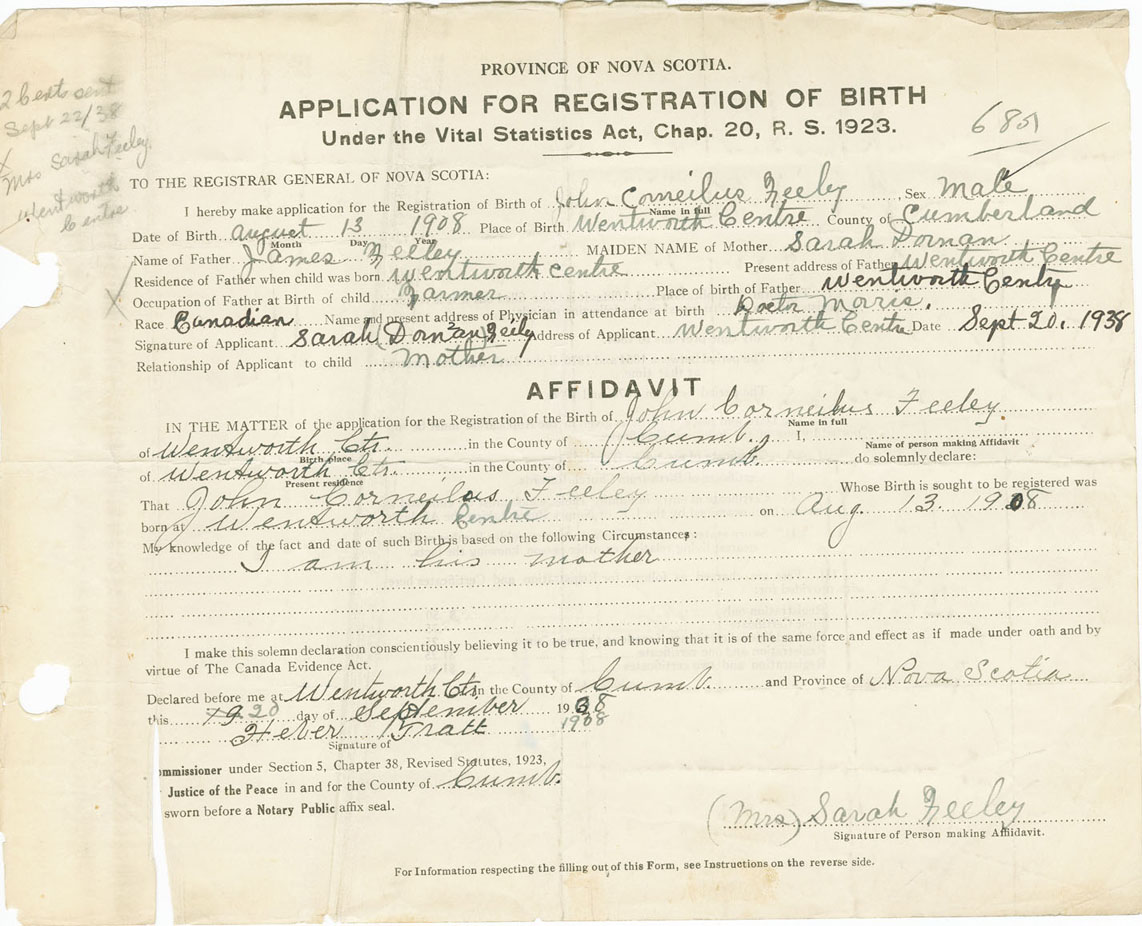 PROVINCE OF NOVA SCOTIA.
APPLICATION FOR REGISTRATION OF BIRTH
Under the Vital Statistics Act, Chap. 20, R. S. 1923.
685
2 Certs sent
Sept 22/38
X
Mrs Sarah Feeley
Wentworth
Centre
TO THE REGISTRAR GENERAL OF NOVA SCOTIA:
I hereby make application for the Registration of Birth of John Corneilus Feeley Sex Male
Name in full
Date of Birth August 13 1908 Place of Birth Wentworth Centre County of Cumberland
Month Day Year
Name of Father James Feeley MAIDEN NAME of Mother Sarah Dornan
Residence of Father when child was born Wentworth Centre Present address of Father Wentworth Centre
X Occupation of Father at Birth of child Farmer Place of birth of Father Wentworth Centre
Race Canadian Name and present address of Physician in attendance at birth Doctor Moris.
Signature of Applicant Sarah (Dornan) Feeley Address of Applicant Wentworth Centre Date Sept 20. 1938
Relationship of Applicant to child Mother
AFFIDAVIT
IN THE MATTER of the application for the Registration of the Birth of John Corneilus Feeley
Name in full
of Wentworth Ctr. in the County of Cumb. I,
Birth place Name of person making Affidavit
of Wentworth Ctr. in the County of Cumb. do solemnly declare:
Present residence
That John Corneilus Feeley Whose Birth is sought to be registered was
born at Wentworth Centre on Aug 13. 1908
My knowledge of the fact and date of such Birth is based on the following Circumstances:
I am his mother
I make this solemn declaration conscientiously believing it to be true, and knowing that it is of the same force and effect as if made under oath and by
virtue of The Canada Evidence Act.
Declared before me at Wentworth Ctr. in the County of Cumb. and Province of Nova Scotia
this 19 20 day of September 1938
1908
Heber Tratt
Signature of
ommissioner under Section 5, Chapter 38, Revised Statutes, 1923,
Justice of the Peace in and for the County of Cumb.
sworn before a Notary Public affix seal.
(Mrs) Sarah Feeley
Signature of Person making Affidavit.
For Information respecting the filling out of this Form, see Instructions on the reverse side.